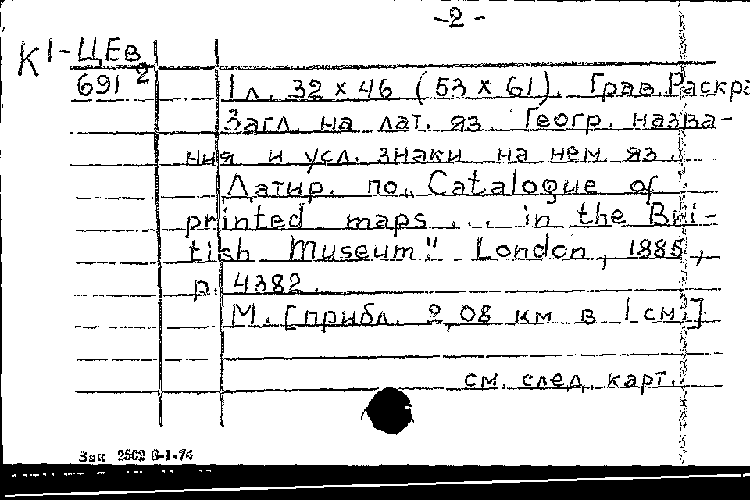 -2-
К1-ЦЕв
691 2
1 л. 32 х 46 (53 х 61). Грав. Раскра
Загл. на лат. яз. Геогр. назва-
ния и усл. знаки на нем. яз.
Датир. по „Catalogue of
printed maps ... in the Bri-
tish Museum". London, 1885,
p. 4382.
М. [прибл. 2,08 км в 1 см.]
см. след. карт.
Зак 2502 6-1-74